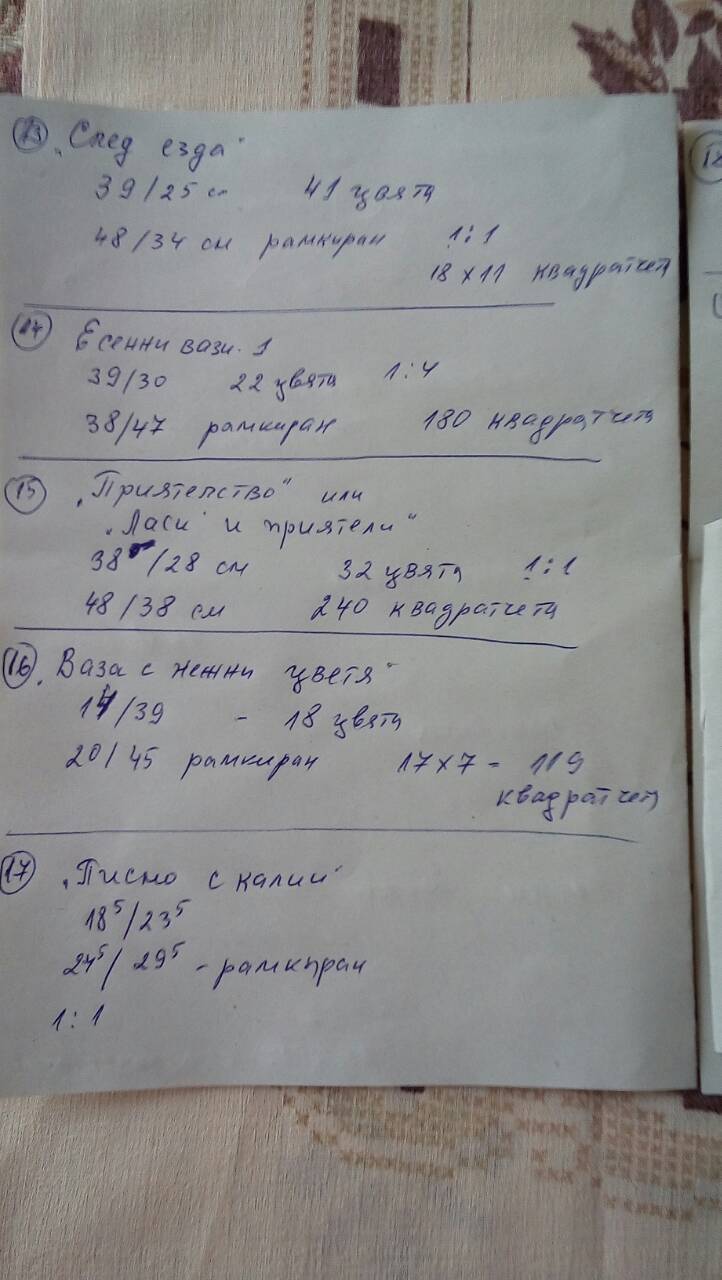 13 „След езда“
39/25 см 41 цвята
48/34 см рамкиран 1:1
18 x 11 квадратчета
14 Есенни вази. 1
39/30 22 цвята 1:4
38/47 рамкиран 180 квадратчета
15 „Приятелство“ или
„Ласи и приятели“
38 /28 см 32 цвята 1:1
48/38 см 240 квадратчета
16 „Ваза с нежни цветя“
14/39 - 18 цвята
20/45 рамкиран 17x7 = 119
квадратчета
17 „Писмо с калии“
18⁵/23⁵
24⁵/29⁵ - рамкиран
1:1
18